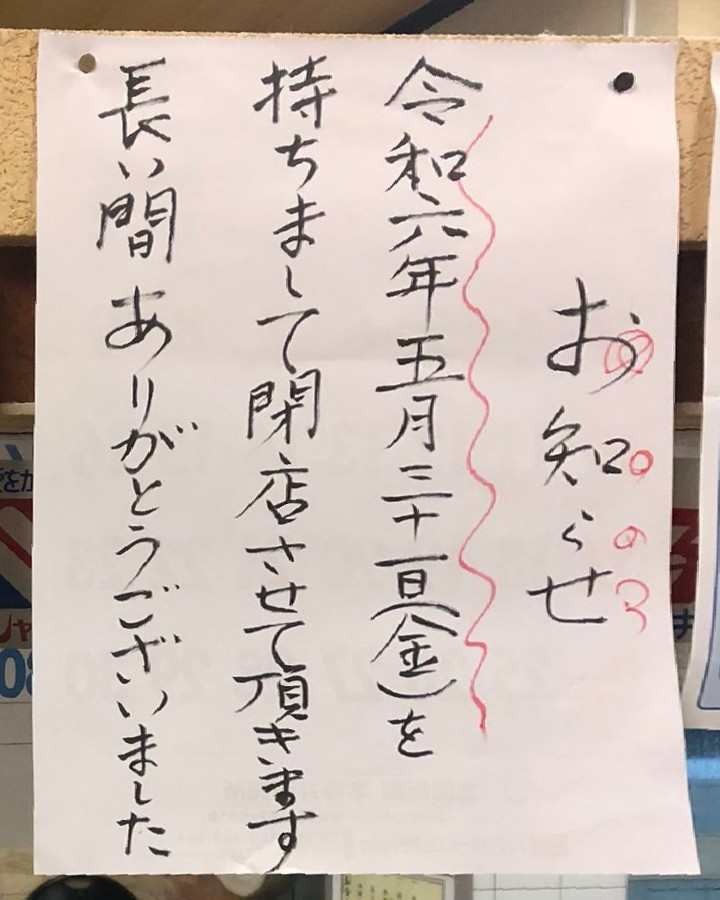 お知らせ
令和六年五月三十一日(金)を
持ちまして閉店させて頂きます
長い間ありがとうございました